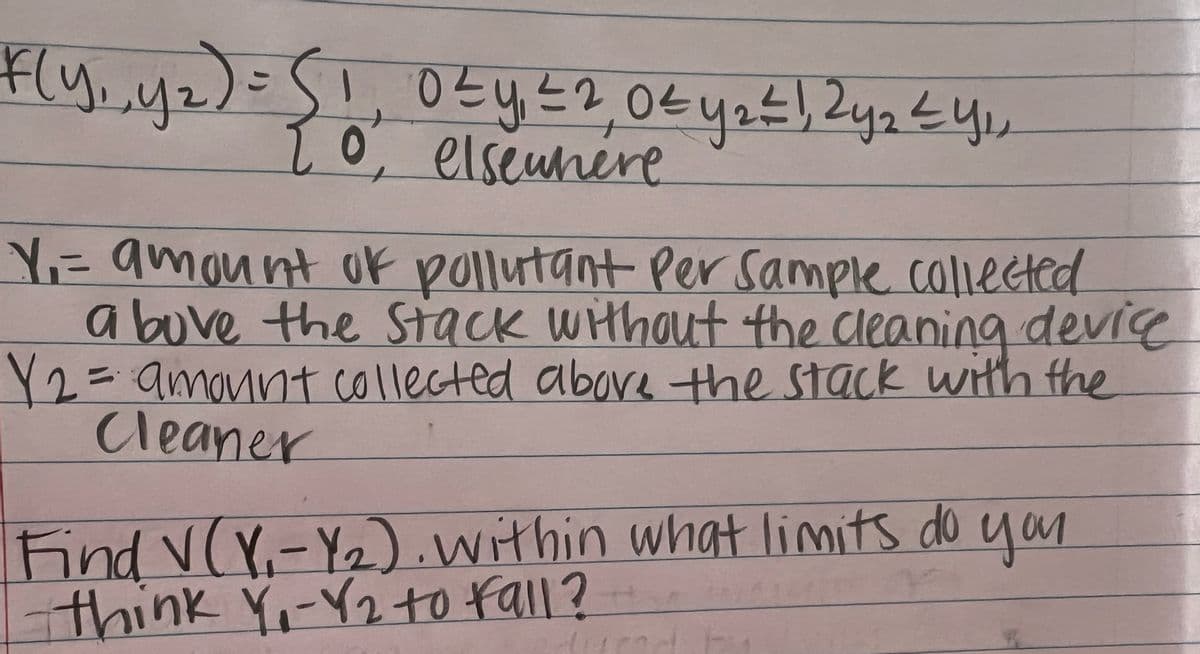 f(y₁,y₂) = { 1, 0≤y₁≤2, 0≤y₂≤1, 2y₂≤y₁,
0, elsewhere
Y₁ = amount of pollutant per sample collected
above the stack without the cleaning device
Y2 = amount collected above the stack with the
cleaner
Find V(Y₁-Y₂). within what limits do you
think Y₁-Y₂ to fall?